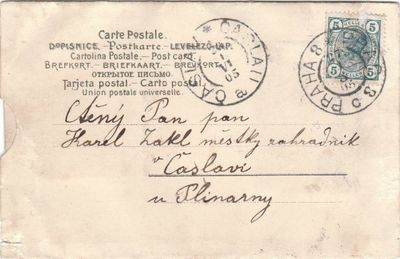 Carte Postale.
DOPISNICE. - Postkarte. - LEVELEZŐ-LAP.
Cartolina Postale. - Post card.
BREFKORT. - BRIEFKAART. - BREVKORT.
ОТКРЫТОЕ ПИСЬМО.
Tarjeta postal. - Carto postal.
Union postale universelle.
ČASLAU
ČÁSLAV
05
PRAHA 8
5 5
5 5
Ctěný Pan pan
Karel Zakl městky zahradnik
v
Čáslavi
u Plinarny